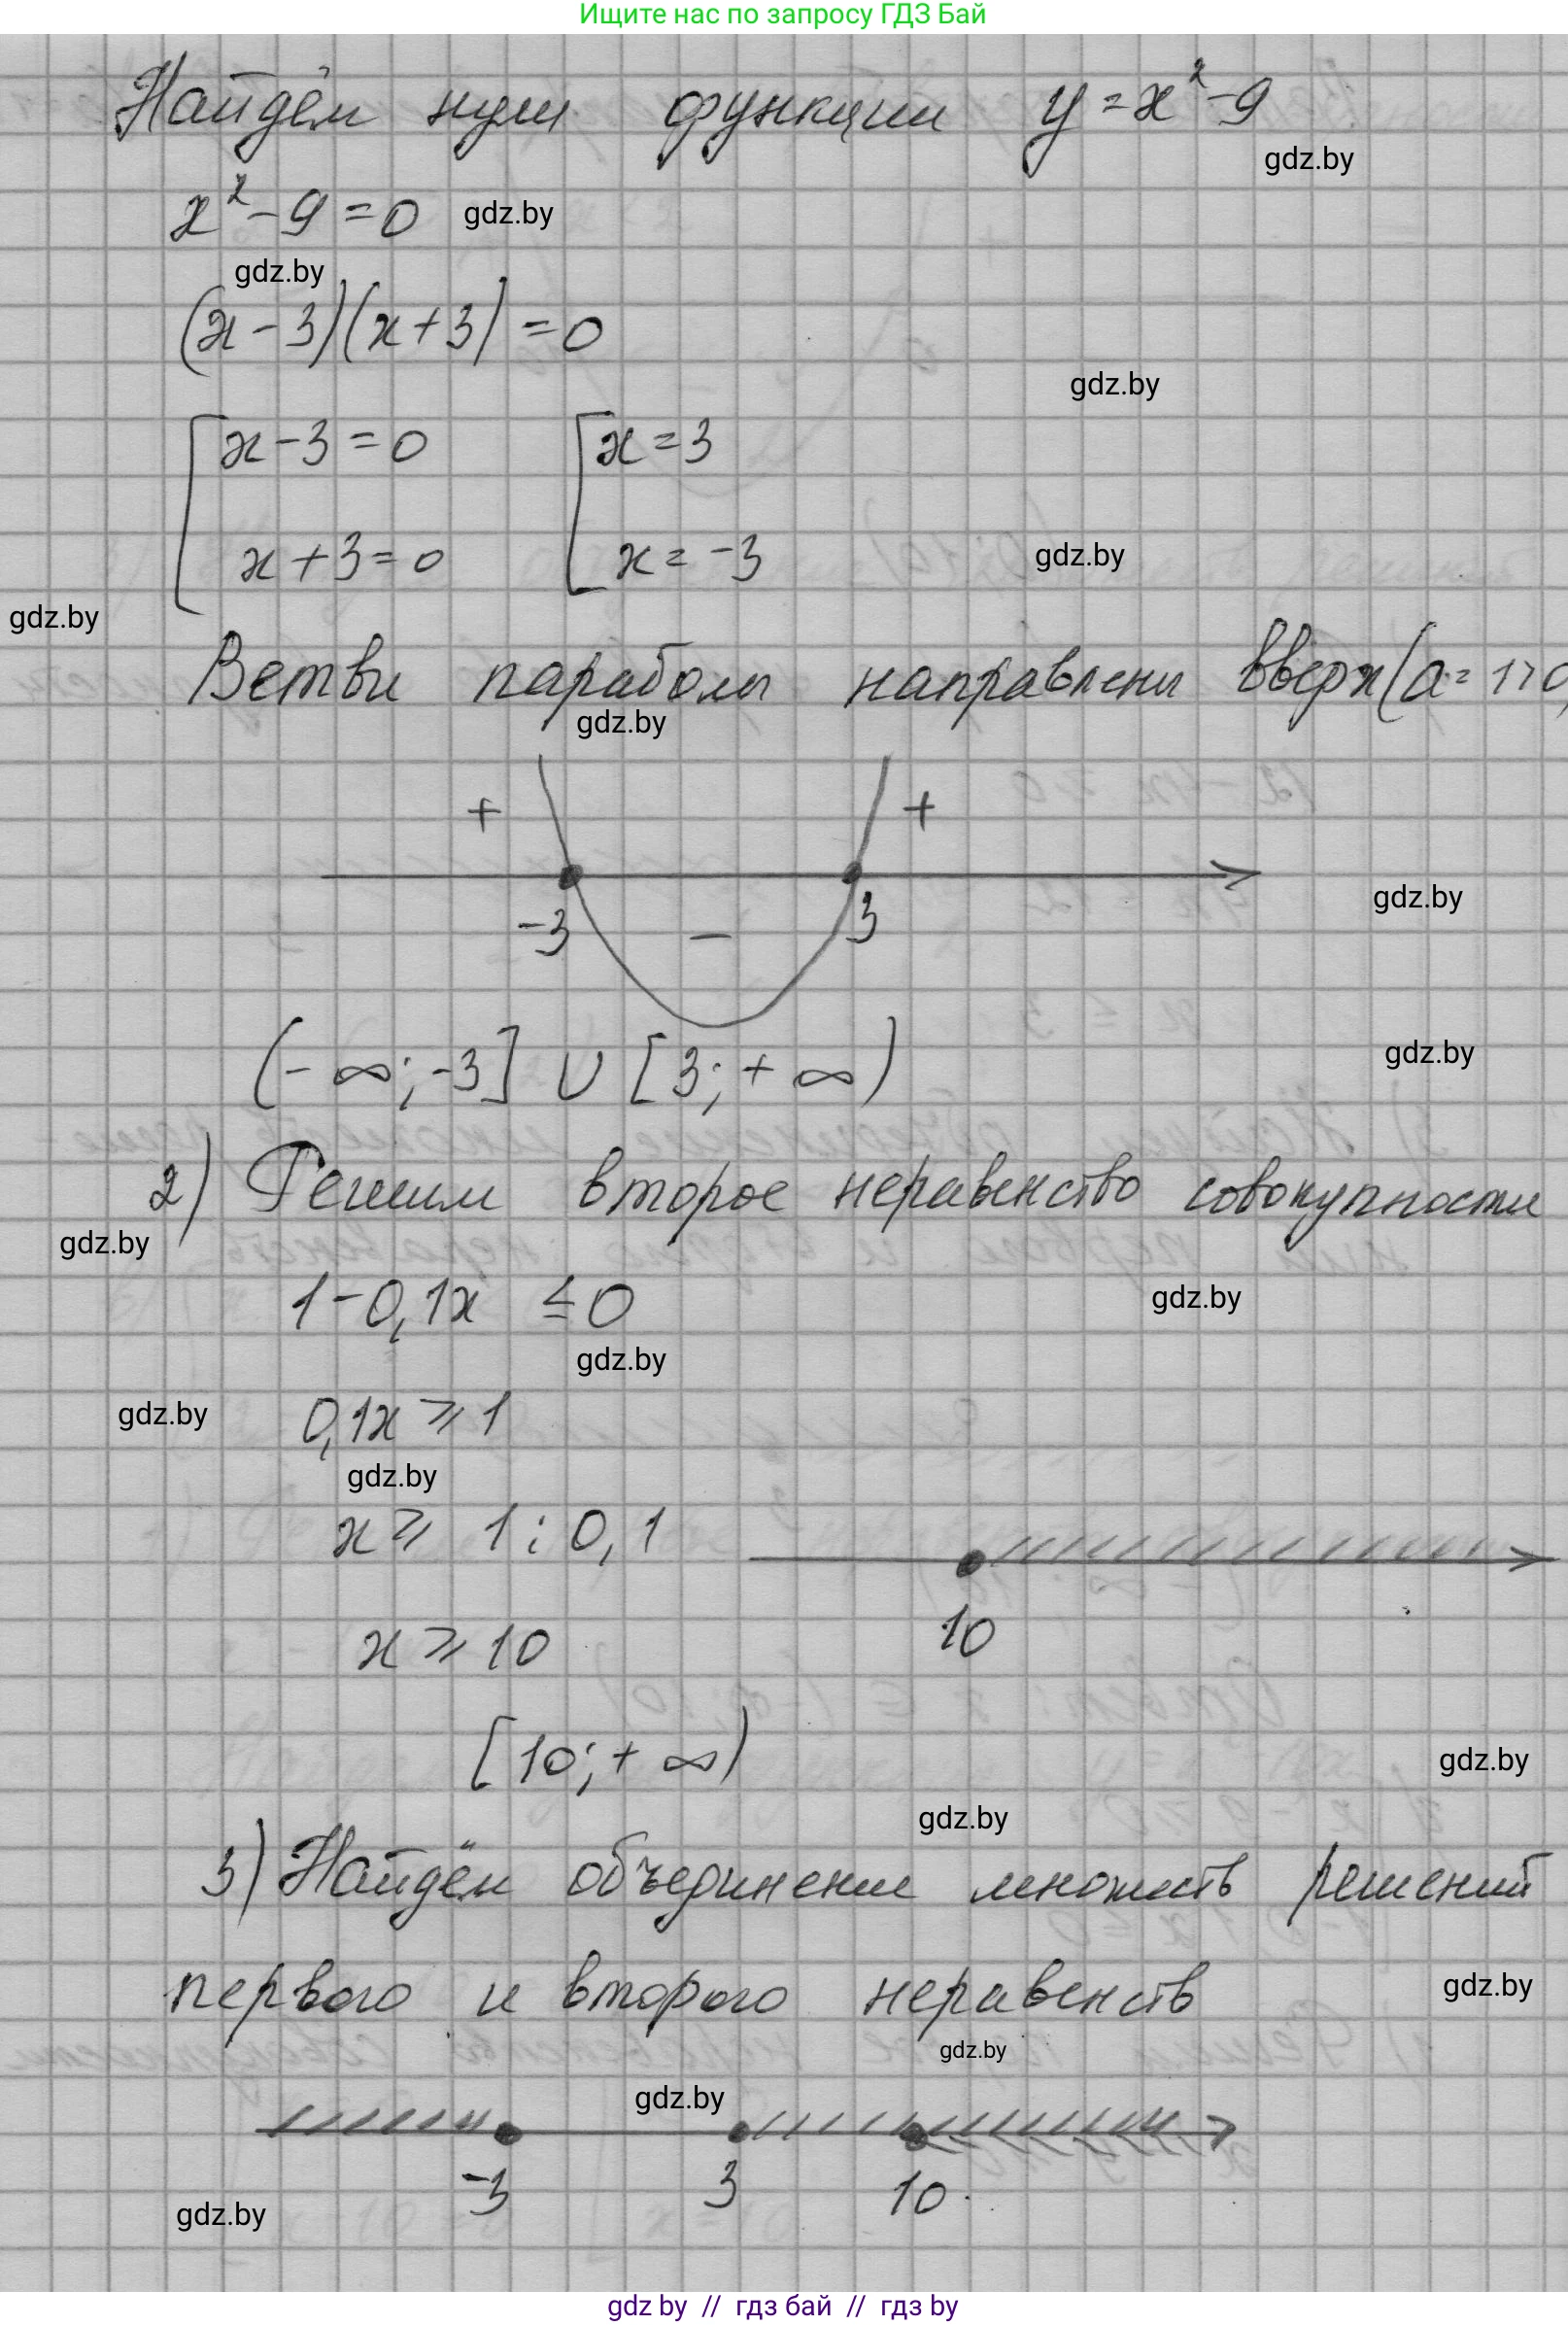 Ищите нас по запросу ГДЗ Бай
Найдём нули функции y = x² - 9
gdz.by
x² - 9 = 0 gdz.by
gdz.by
(x - 3)(x + 3) = 0
gdz.by
x - 3 = 0 x = 3
x + 3 = 0 x = -3 gdz.by
gdz.by
Ветви параболы направлены вверх (a = 1 > 0)
gdz.by
+ +
-3 3 gdz.by
-
(-∞; -3] ∪ [3; +∞) gdz.by
2) Решим второе неравенство совокупности
gdz.by
1 - 0,1x ≤ 0 gdz.by
gdz.by
gdz.by 0,1x ≥ 1
gdz.by
x ≥ 1 : 0,1
10
x ≥ 10
[10; +∞) gdz.by
gdz.by
3) Найдём объединение множеств решений
первого и второго неравенств gdz.by
gdz.by
gdz.by
-3 3 10
gdz.by
gdz by // гдз бай // гдз by